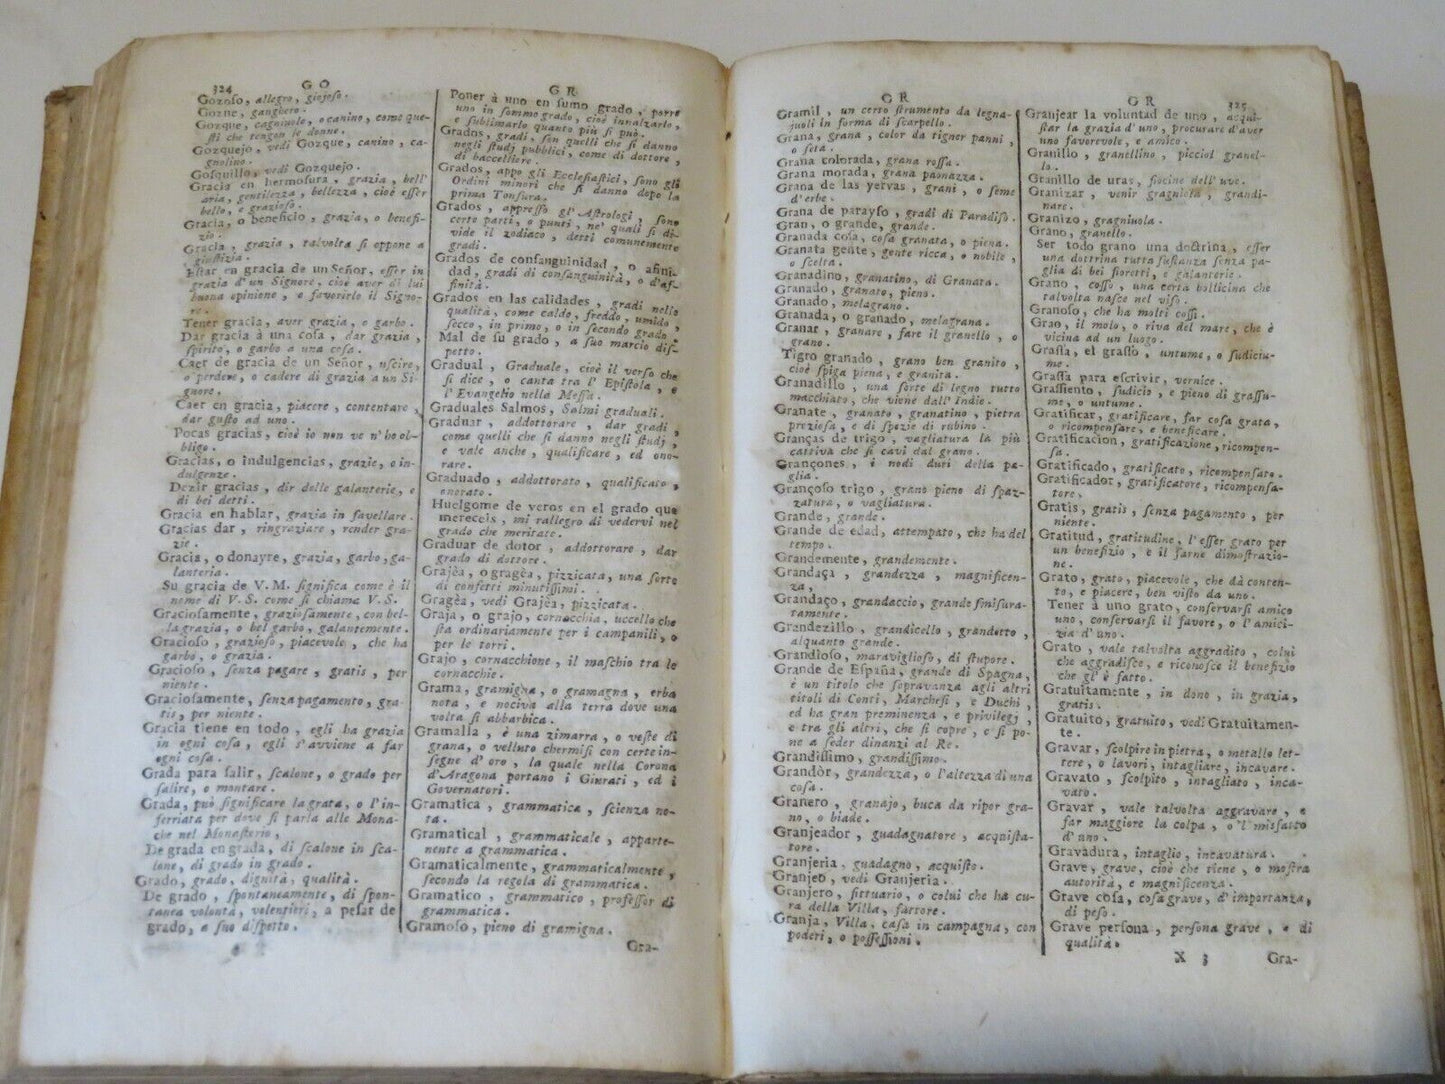 324 G O
Gozoſo, allegro, giojoſo.
Gozne, ganghero.
Gozque, cagnuole, o canino, come que-
ſti che tengon le donne.
Gozquejo, vedi Gozque, canino, ca-
gnolino.
Goſquillo, vedi Gozquejo.
Gracia en hermoſura, grazia, bell'
aria, gentilezza, bellezza, cioè eſſer
bello, e grazioſo.
Gracia, o beneficio, grazia, o benefi-
zio.
Gracia, grazia, talvolta ſi oppone a
giuſtizia.
Eſtar en gracia de un Señor, eſſer in
grazia d'un Signore, cioè aver di lui
buona opinione, e favorirlo il Signo-
re.
Tener gracia, aver grazia, o garbo.
Dar gracia à una coſa, dar grazia,
ſpirito, o garbo a una coſa.
Caer de gracia de un Señor, uſcire,
o perdere, o cadere di grazia a un Si-
gnore.
Caer en gracia, piacere, contentare,
dar guſto ad uno.
Pocas gracias, cioè io non ve n'ho ob-
bligo.
Gracias, o indulgencias, grazie, o in-
dulgenze.
Dezir gracias, dir delle galanterie, e
di bei detti.
Gracia en hablar, grazia in favellare.
Gracias dar, ringraziare, render gra-
zie.
Gracia, o donayre, grazia, garbo, ga-
lanteria.
Su gracia de V. M. ſignifica come è il
nome di V. S. come ſi chiama V. S.
Gracioſamente, grazioſamente, con bel-
la grazia, o bel garbo, galantemente.
Gracioſo, grazioſo, piacevole, che ha
garbo, o grazia.
Gracioſo, ſenza pagare, gratis, per
niente.
Gracioſamente, ſenza pagamento, gra-
tis, per niente.
Gracia tiene en todo, egli ha grazia
in ogni coſa, egli s'avviene a far
ogni coſa.
Grada para ſalir, ſcalone, o grado per
ſalire, o montare.
Grada, può ſignificare la grata, o l'in-
ferriata per dove ſi parla alle Mona-
che nel Monaſterio,
De grada en grada, di ſcalone in ſca-
lone, di grado in grado.
Grado, grado, dignità, qualità.
De grado, ſpontaneamente, di ſpon-
tanea volontà, volentieri, a peſar de
grado, a ſuo diſpetto.
G R
Poner à uno en ſumo grado, porre
uno in ſommo grado, cioè innalzarlo,
e ſublimarlo quanto più ſi può.
Grados, gradi, ſon quelli che ſi danno
negli ſtudj pubblici, come di dottore,
di baccelliere.
Grados, appo gli Eccleſiaſtici, ſono gli
Ordini minori che ſi danno dopo la
prima Tonſura.
Grados, appreſſo gl'Aſtrologi, ſono
certe parti, o punti, ne' quali ſi di-
vide il zodiaco, detti comunemente
gradi.
Grados de conſanguinidad, o afini-
dad, gradi di conſanguinità, o d'af-
finità.
Grados en las calidades, gradi nelle
qualità, come caldo, freddo, umido,
ſecco, in primo, o in ſecondo grado.
Mal de ſu grado, a ſuo marcio diſ-
petto.
Gradual, Graduale, cioè il verſo che
ſi dice, o canta tra l'Epiſtola, e
l'Evangelio nella Meſſa.
Graduales Salmos, Salmi graduali.
Graduar, addottorare, dar gradi,
come quelli che ſi danno negli ſtudj,
e vale anche, qualificare, ed ono-
rare.
Graduado, addottorato, qualificato,
onorato.
Huelgome de veros en el grado que
mereceis, mi rallegro di vedervi nel
grado che meritate.
Graduar de dotor, addottorare, dar
grado di dottore.
Grajèa, o gragèa, pizzicata, una ſorte
di confetti minutiſſimi.
Gragèa, vedi Grajèa, pizzicata.
Graja, o grajo, cornacchia, uccello che
ſta ordinariamente per i campanili, o
per le torri.
Grajo, cornacchione, il maſchio tra le
cornacchie.
Grama, gramigna, o gramagna, erba
nota, e nociva alla terra dove una
volta ſi abbarbica.
Gramalla, è una zimarra, o veſte di
grana, o velluto chermiſi con certe in-
ſegne d'oro, la quale nella Corona
d'Aragona portano i Giurati, ed i
Governatori.
Gramatica, grammatica, ſcienza no-
ta.
Gramatical, grammaticale, apparte-
nente a grammatica.
Gramaticalmente, grammaticalmente,
ſecondo la regola di grammatica.
Gramatico, grammatico, profeſſor di
grammatica.
Gramoſo, pieno di gramigna.
Gra-
G R
Gramil, un certo ſtrumento da legna-
juoli in forma di ſcarpello.
Grana, grana, color da tigner panni,
o ſeta.
Grana colorada, grana roſſa.
Grana morada, grana paonazza.
Grana de las yervas, grani, o ſeme
d'erbe.
Grana de parayſo, gradi di Paradiſo.
Gran, o grande, grande.
Granada coſa, coſa granata, o piena.
Granata gente, gente ricca, o nobile,
o ſcelta.
Granadino, granatino, di Granata.
Granado, granato, pieno.
Granado, melagrano.
Granada, o granado, melagrana.
Granar, granare, fare il granello, o
grano.
Tigro granado, grano ben granito,
cioè ſpiga piena, e granita.
Granadillo, una ſorte di legno tutto
macchiato, che viene dall'Indie.
Granate, granato, granatino, pietra
prezioſa, e di ſpezie di rubino.
Granças de trigo, vagliatura la più
cattiva che ſi cavi dal grano.
Grançones, i nodi duri della pa-
glia.
Grançoſo trigo, grano pieno di ſpaz-
zatura, o vagliatura.
Grande, grande.
Grande de edad, attempato, che ha del
tempo.
Grandemente, grandemente.
Grandaça, grandezza, magnificen-
za,
Grandaço, grandaccio, grande ſmiſura-
tamente.
Grandezillo, grandicello, grandetto,
alquanto grande.
Grandioſo, maraviglioſo, di ſtupore.
Grande de Eſpaña, grande di Spagna,
è un titolo che ſopravanza agli altri
titoli di Conti, Marcheſi, e Duchi,
ed ha gran preminenza, e privilegj,
e tra gli altri, che ſi copre, e ſi po-
ne a ſeder dinanzi al Re.
Grandiſſimo, grandiſſimo.
Grandòr, grandezza, o l'altezza di una
coſa.
Granero, granajo, buca da ripor gra-
no, o biade.
Granjeador, guadagnatore, acquiſta-
tore.
Granjeria, guadagno, acquiſto.
Granjeo, vedi Granjeria.
Granjero, fittuario, o colui che ha cu-
ra della Villa, fattore.
Granja, Villa, caſa in campagna, con
poderi, o poſſeſſioni.
G R 325
Granjear la voluntad de uno, acqui-
ſtar la grazia d'uno, procurare d'aver
uno favorevole, e amico.
Granillo, granellino, picciol granel-
lo.
Granillo de uras, fiocine dell'uve.
Granizar, venir gragniola, grandi-
nare.
Granizo, gragniuola.
Grano, granello.
Ser todo grano una doctrina, eſſer
una dottrina tutta ſuſtanza ſenza pa-
glia di bei fioretti, e galanterie.
Grano, coſſo, una certa bollicina che
talvolta naſce nel viſo.
Granoſo, che ha molti coſſi.
Grao, il molo, o riva del mare, che è
vicina ad un luogo.
Graſſa, el graſſo, untume, o ſudiciu-
me.
Graſſa para eſcrivir, vernice.
Graſſiento, ſudicio, e pieno di graſſu-
me, o untume.
Gratificar, gratificare, far coſa grata,
o ricompenſare, e beneficare.
Gratificacion, gratificazione, ricompen-
ſa.
Gratificado, gratificato, ricompenſato.
Gratificador, gratificatore, ricompenſa-
tore,
Gratis, gratis, ſenza pagamento, per
niente.
Gratitud, gratitudine, l'eſſer grato per
un benefizio, e il farne dimoſtrazio-
ne.
Grato, grato, piacevole, che dà conten-
to, e piacere, ben viſto da uno.
Tener à uno grato, conſervarſi amico
uno, conſervarſi il favore, o l'amici-
zia d'uno.
Grato, vale talvolta aggradito, colui
che aggradiſce, e riconoſce il benefizio
che gl'è fatto.
Gratuitamente, in dono, in grazia,
gratis.
Gratuito, gratuito, vedi Gratuitamen-
te.
Gravar, ſcolpire in pietra, o metallo let-
tere, o lavori, intagliare, incavare.
Gravato, ſcolpito, intagliato, inca-
vato.
Gravar, vale talvolta aggravare, e
far maggiore la colpa, o 'l misfatto
d'uno.
Gravadura, intaglio, incavatura.
Grave, grave, cioè che tiene, o moſtra
autorità, e magnificenza.
Grave coſa, coſa grave, d'importanza,
di peſo.
Grave perſona, perſona grave, e di
qualità.
X 3 Gra-